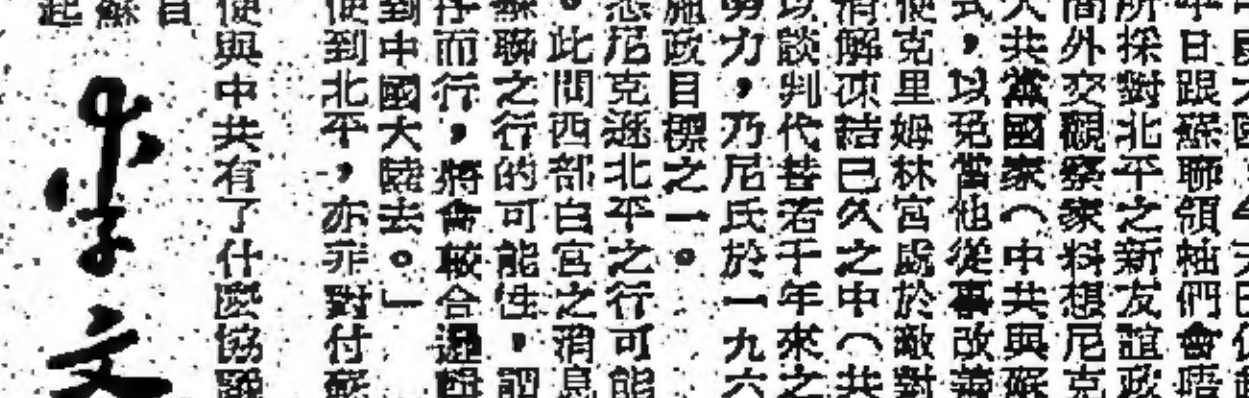 中國大國
年日跟蘇聯領袖們會晤
所採對北平之新友誼政
間外交觀察家料想尼克
大共黨國家(中共與蘇
式,以免當他從事改善
使克里姆林宮處於敵對
消解凍結已久之中(共
以談判代替若干年來之
努力,乃尼氏於一九六
施政目標之一。
悉尼克遜北平之行可能
。此間西部白宮之消息
蘇聯之行的可能性,謂
存而行,將會較合邏輯
到中國大陸去。」
使到北平,亦非對付蘇
便與中共有了什麼協
自
蘇
起
文